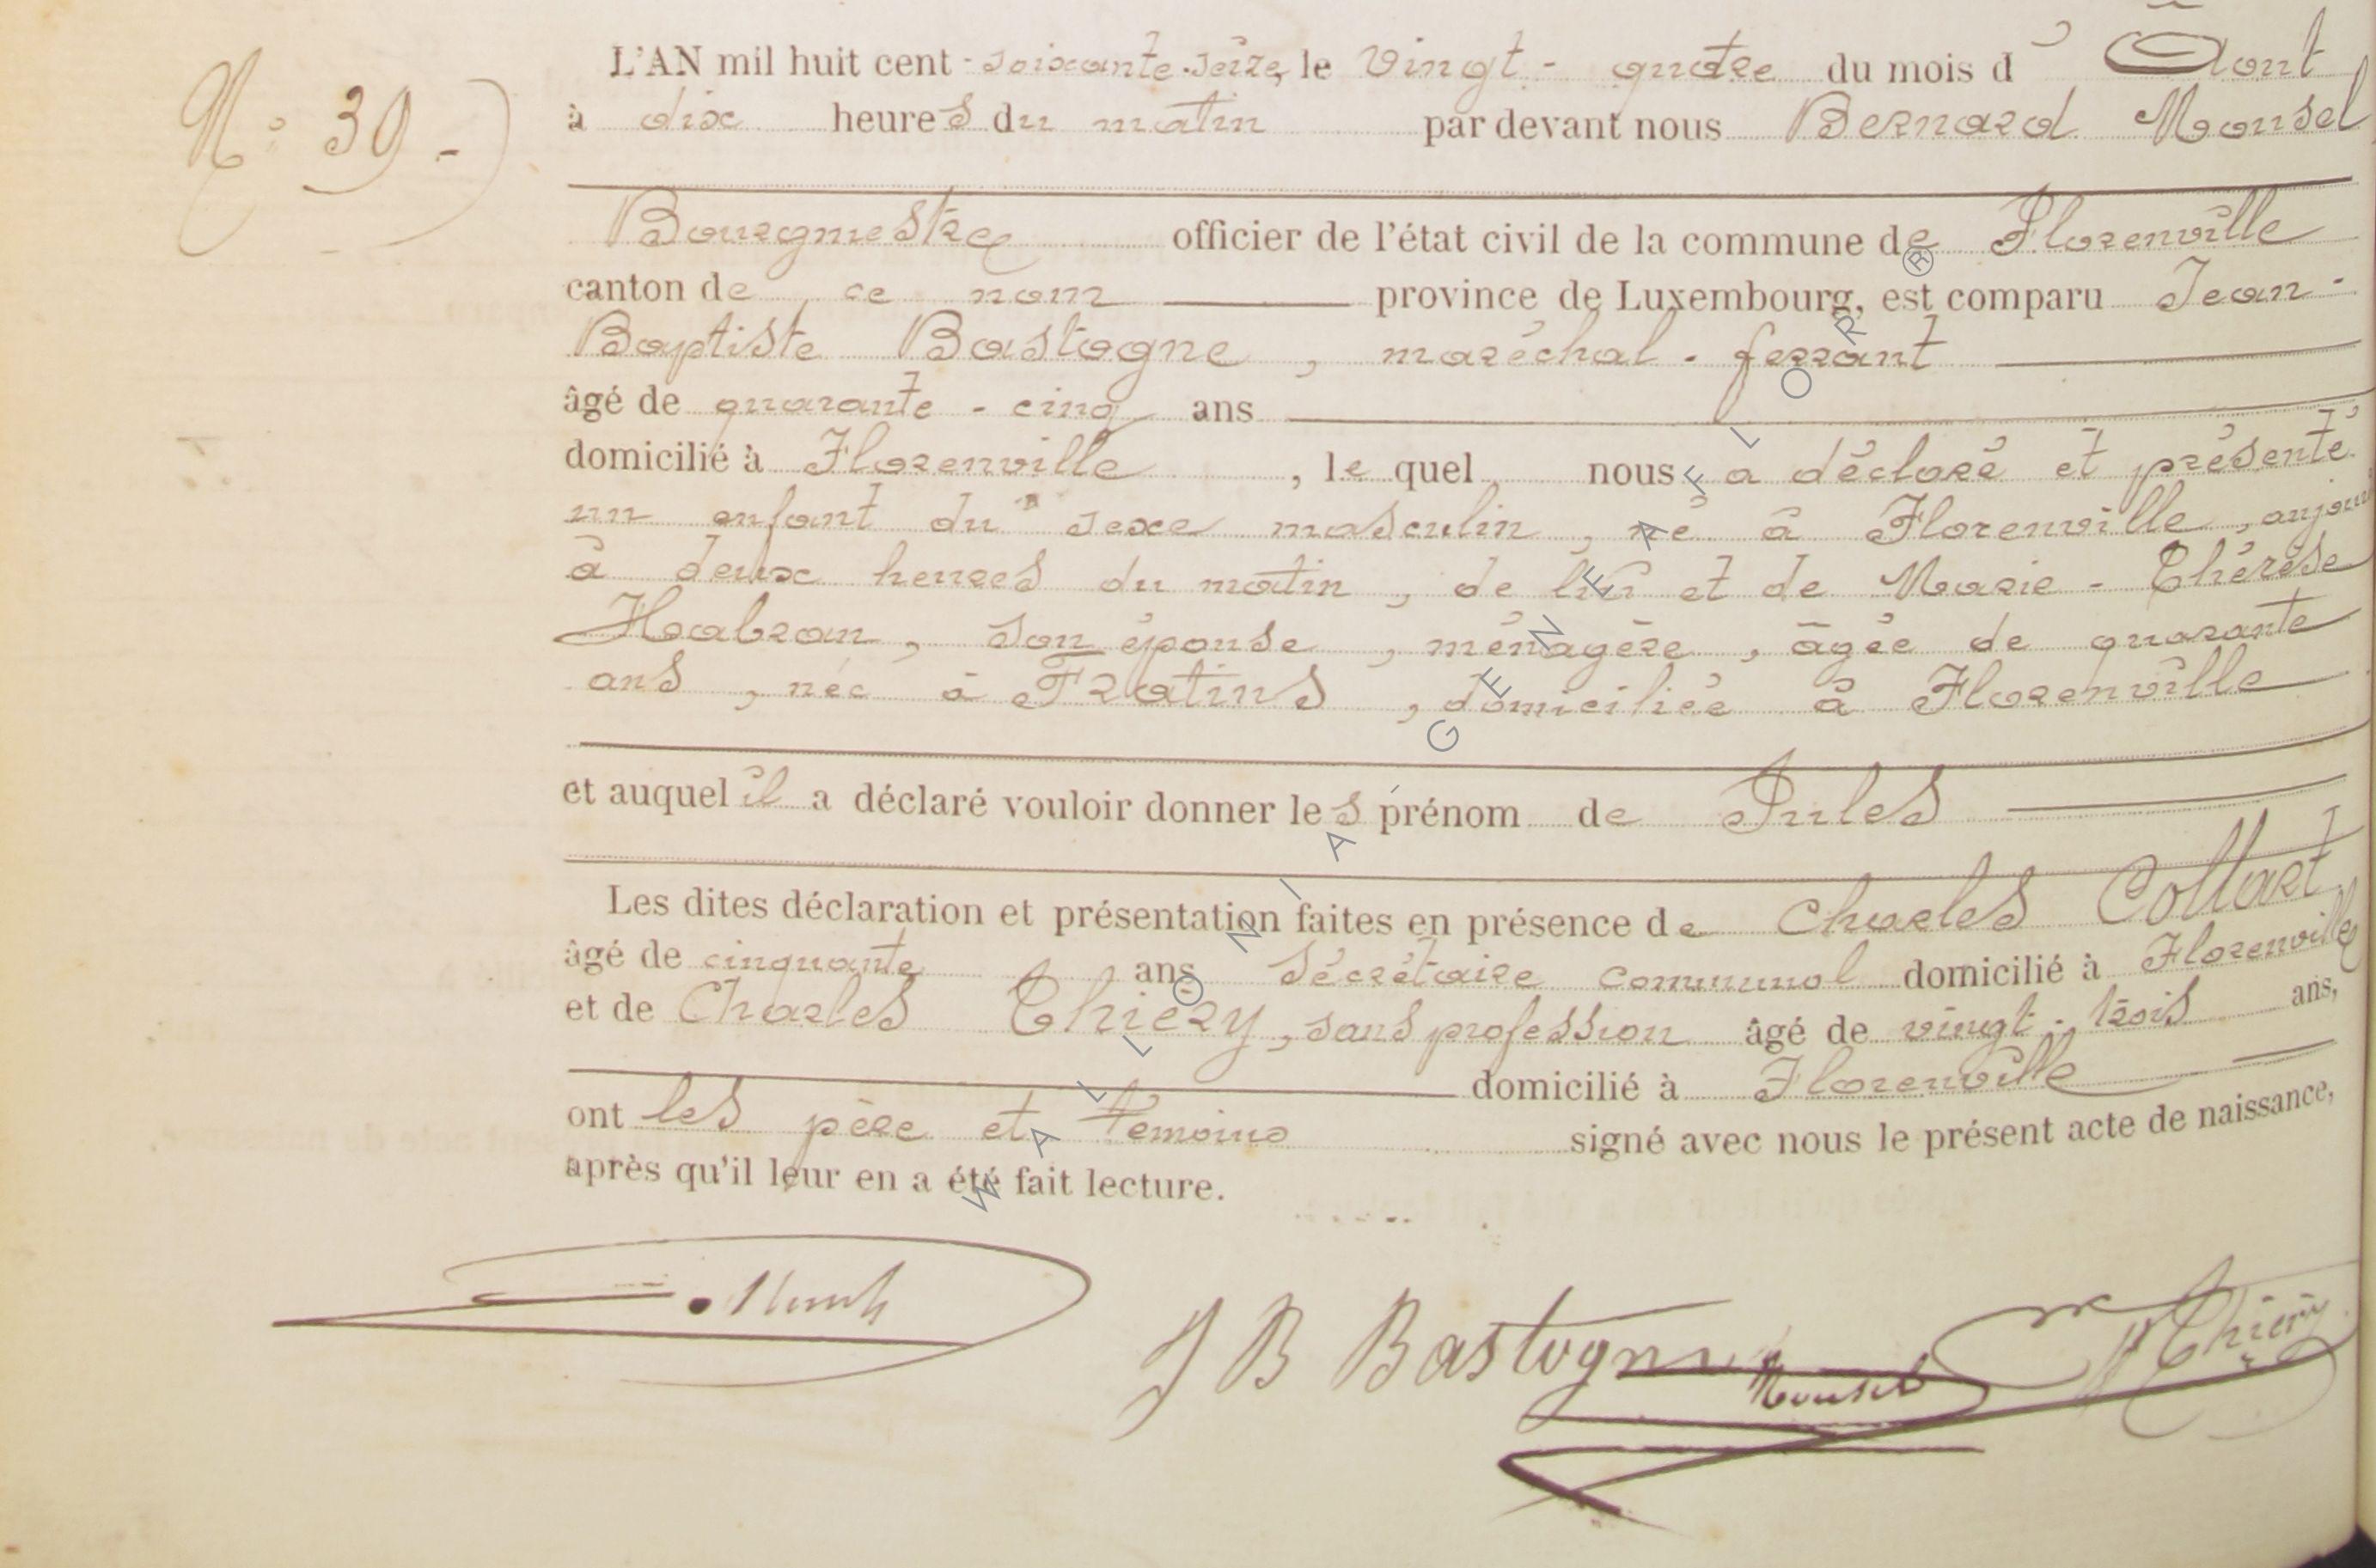 N° 39 -
L'AN mil huit cent - soixante-seize, le vingt - quatre du mois d' Août
à dix heures du matin par devant nous Bernard Mousel
Bourgmestre officier de l'état civil de la commune de Florenville
canton de ce nom province de Luxembourg, est comparu Jean -
Baptiste Bastogne, maréchal - ferrant
âgé de quarante - cinq ans
domicilié à Florenville, lequel nous a déclaré et présenté
un enfant du sexe masculin, né à Florenville, aujour
à deux heures du matin, de lui et de Marie - Thérèse
Habran, son épouse, ménagère, âgée de quarante
ans, née à Fratins, domiciliée à Florenville
et auquel il a déclaré vouloir donner les prénom de Jules
Les dites déclaration et présentation faites en présence de Charles Collart
âgé de cinquante ans Sécrétaire communal domicilié à Florenville
et de Charles Thiéry, sans profession âgé de vingt - trois ans,
domicilié à Florenville
ont les père et témoins signé avec nous le présent acte de naissance,
après qu'il leur en a été fait lecture.
J B Bastogne
Mousel
Thiéry
WALLONIA GENEAFLOR®